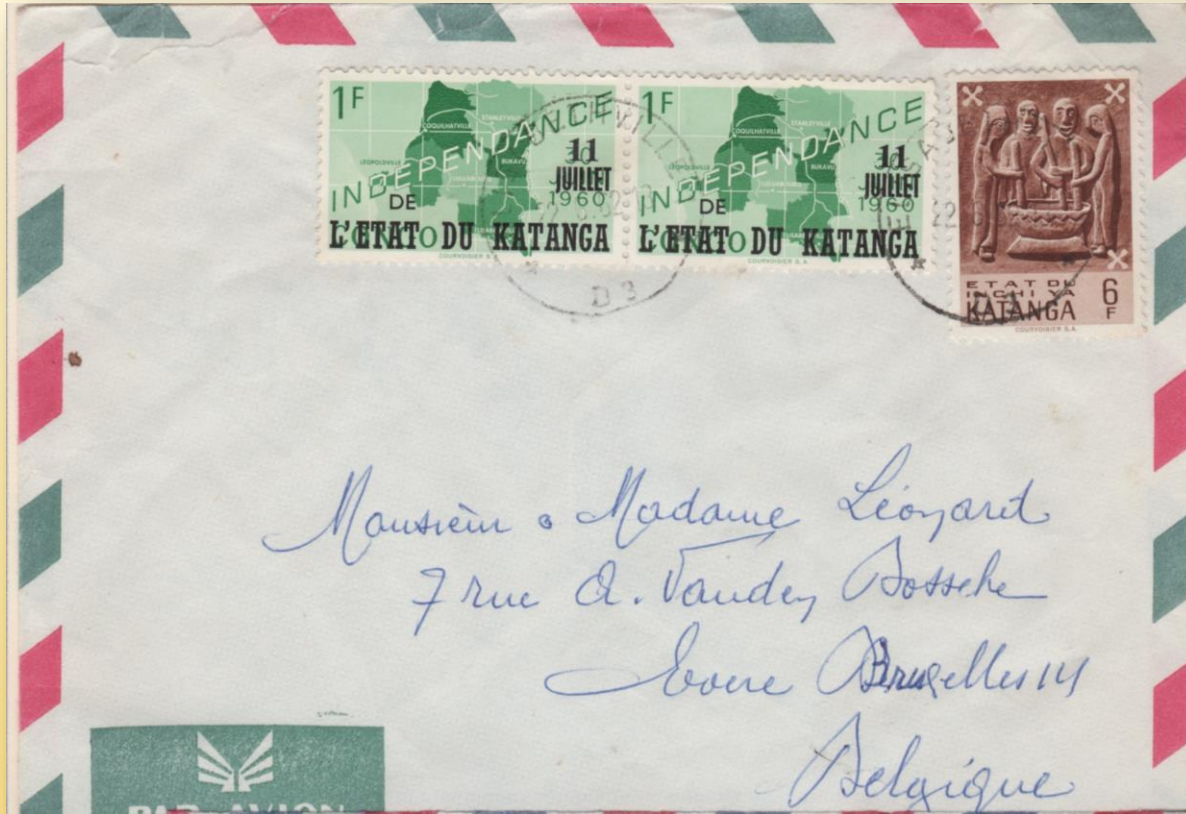 1F
COQUILHATVILLE
STANLEYVILLE
LEOPOLDVILLE
BUKAVU
INDEPENDANCE
11
JUILLET
1960
DE
L'ETAT DU KATANGA
COURVOISIER S.A.
1F
COQUILHATVILLE
STANLEYVILLE
LEOPOLDVILLE
BUKAVU
INDEPENDANCE
11
JUILLET
1960
DE
L'ETAT DU KATANGA
COURVOISIER S.A.
D3
ETAT DU
INCHI YA
KATANGA
6
F
COURVOISIER S.A.
Monsieur & Madame Léonard
7 rue A. Vanden Bossche
Evere Bruxelles 14
Belgique
PAR AVION